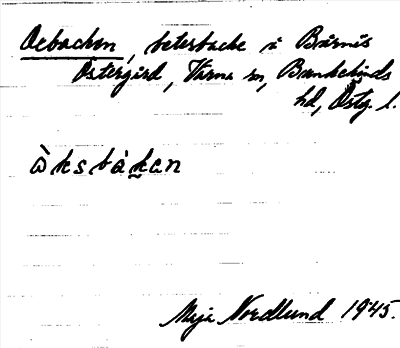 Oxbacken, betesbacke i Bärnis
Östergård, Värna sn, Bankekinds
hd, Östg. l.
àksbàkan
Maja Nordlund 1945.